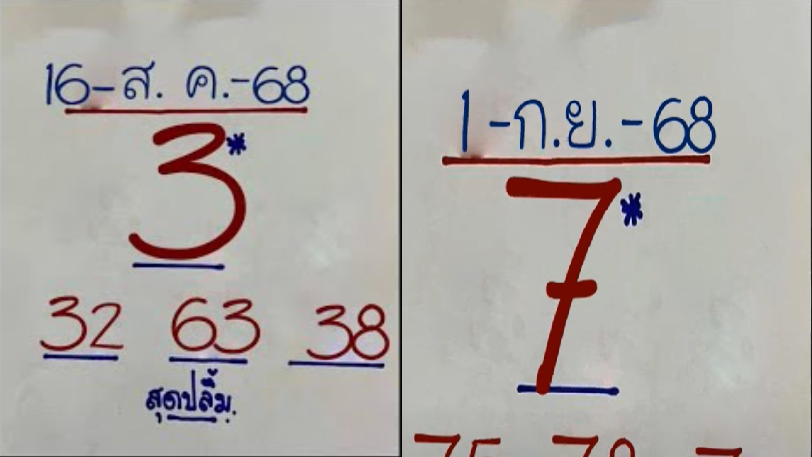 16-ส. ค.-68
3*
32 63 38
สุดปลื้ม.
1-ก.ย.-68
7*
75 78